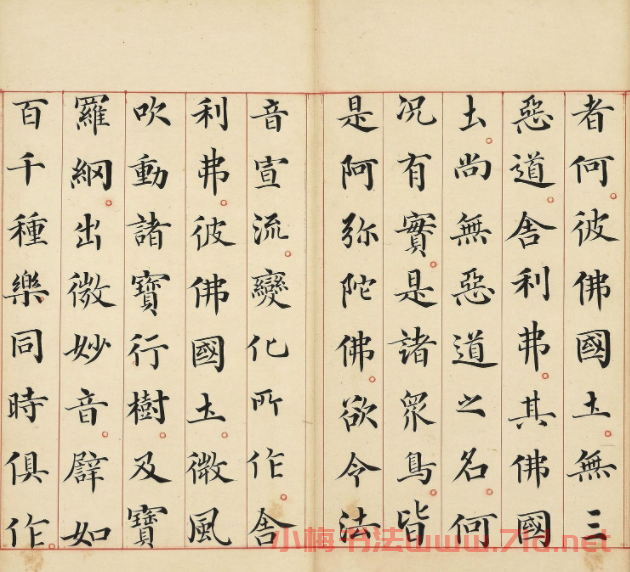 者何彼佛國土。無三
惡道。舍利弗。其佛國
土。尚無惡道之名。何
况有實。是諸衆鳥。皆
是阿弥陀佛。欲令法
音宣流。變化所作。舍
利弗。彼佛國土。微風
吹動諸寶行樹。及寶
羅網。出微妙音。譬如
百千種樂同時俱作。
小梅书法www.71d.net